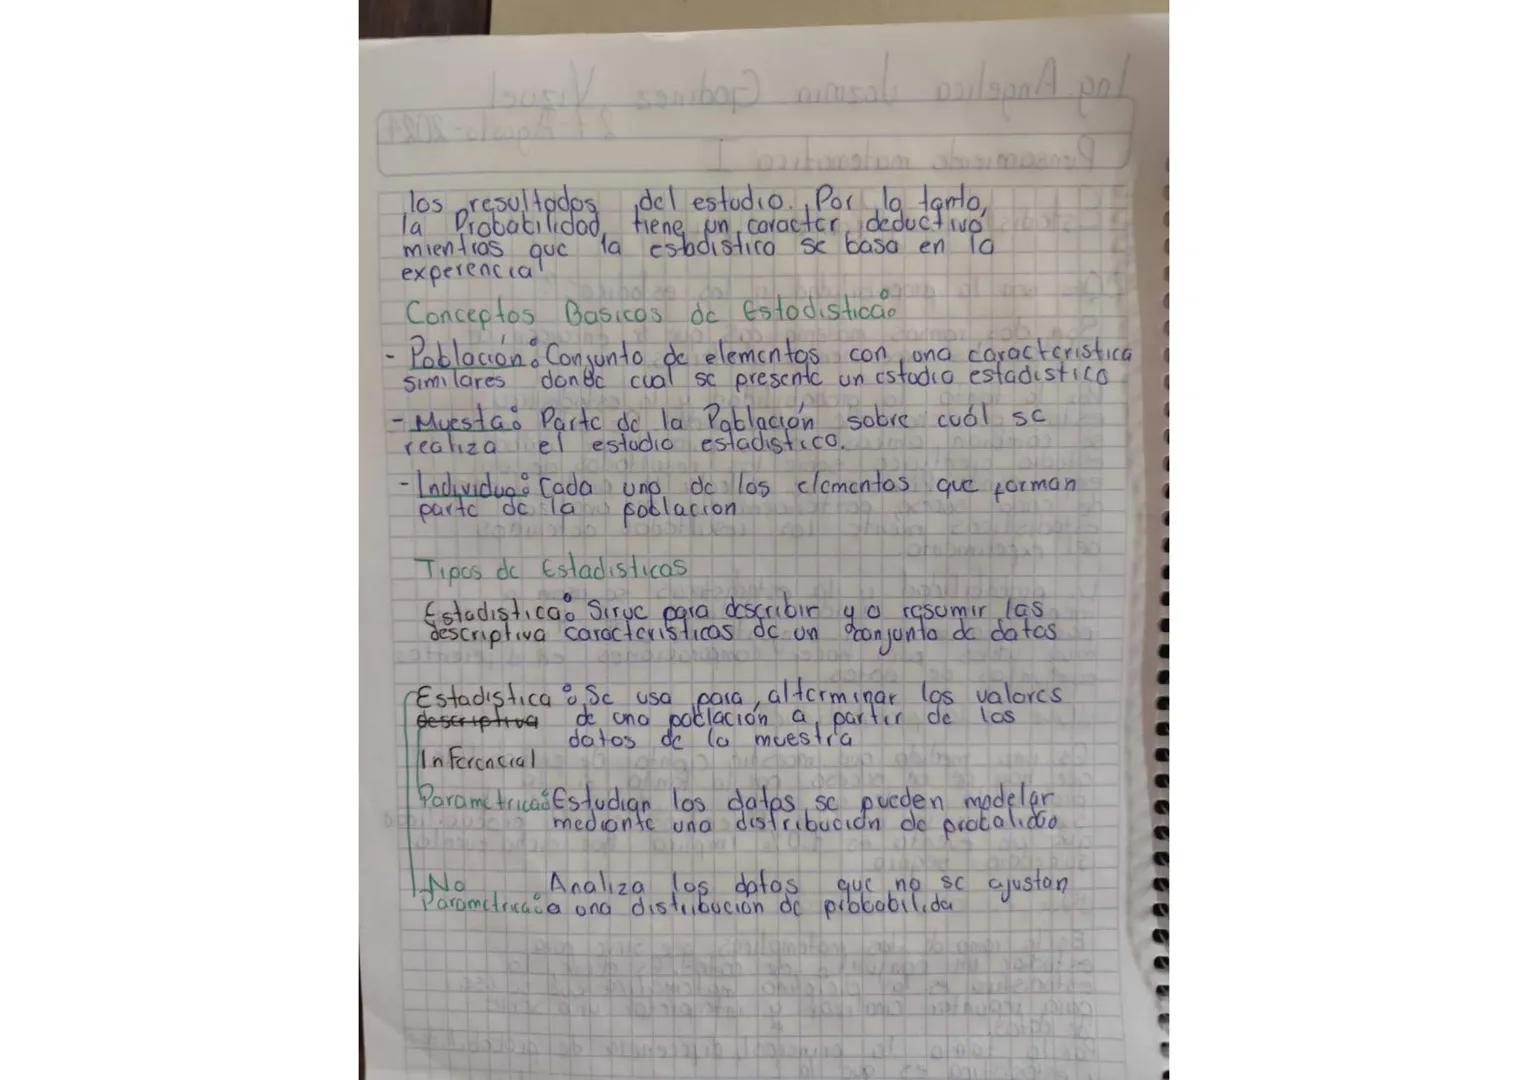 los resultados del estudio. Por lo tanto,
la Probabilidad tiene un caracter deductivo
mientras que la estadistica se basa en la
experencia
Conceptos Basicos de Estadistica:
- Población: Conjunto de elementos con una caracteristica
similares donde cual se presente un estudio estadistico
- Muesta: Parte de la Población sobre cuál se
realiza el estudio estadistico.
- Individuo: Cada uno de los elementos que forman
parte de la poblacion
Tipos de Estadisticas
Estadistica: Sirve para describir y o resumir las
descriptiva caracteristicas de un conjunto de datos
Estadistica: Se usa para, alterminar los valores
descriptiva de una población a partir de los
datos de la muestra
Inferencial
Parametrica: Estudian los datos se pueden modelar
mediante una distribución de
No Analiza los datos que no se ajustan
Parametrica: a una distribucion de probabilida